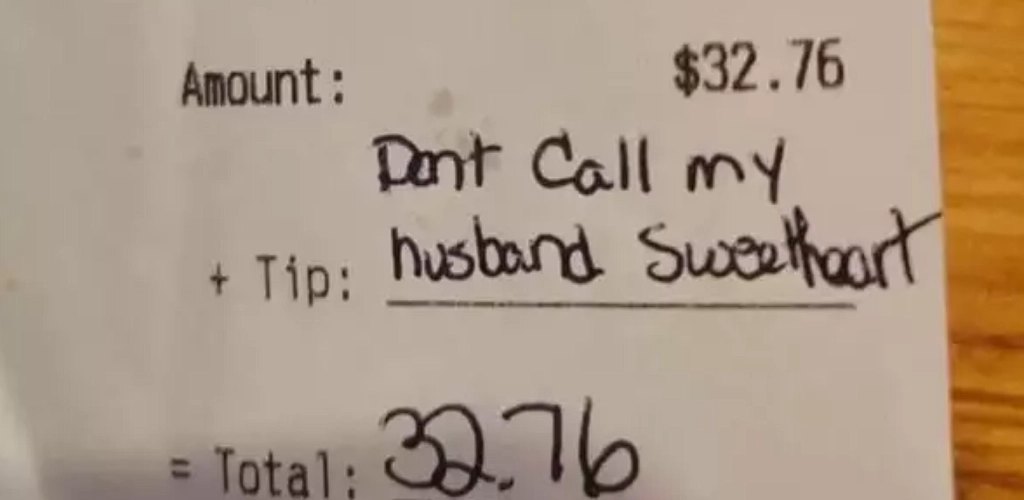 Amount: $32.76
Dont Call my
+ Tip: husband Sweetheart
= Total: 32.76